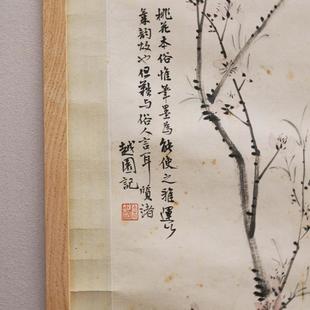 桃花本俗惟筆墨為能使之雅運以
篆韵故也但難与俗人言耳質諸
越園記